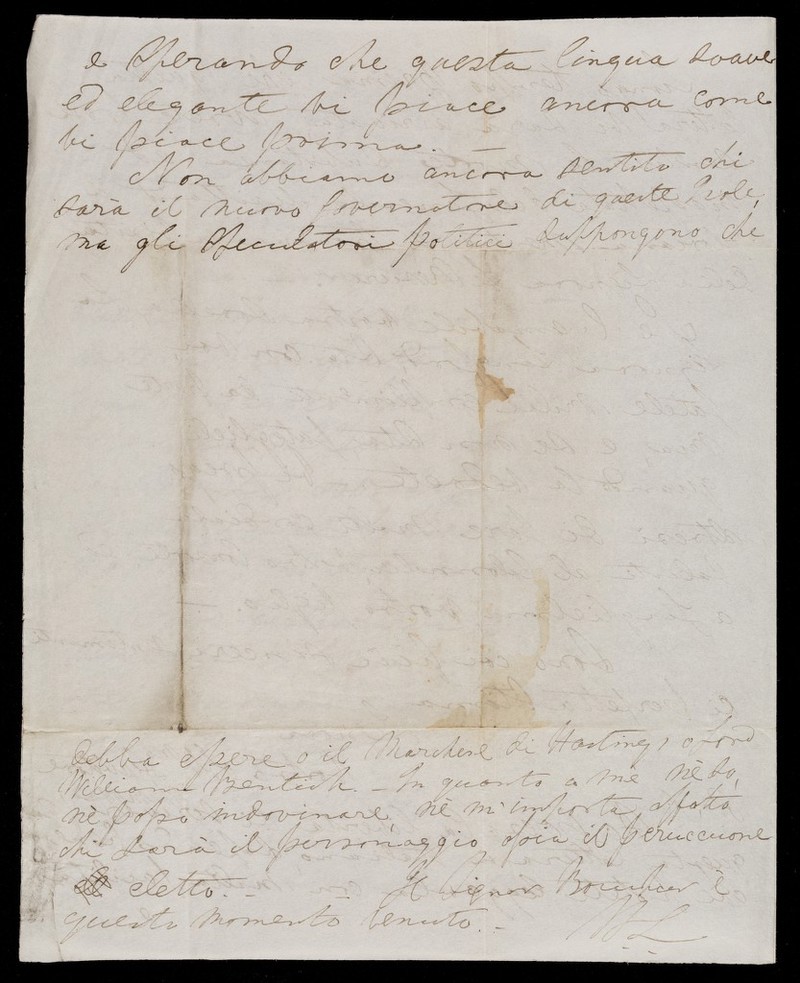 e sperando che questa lingua soave
ed elegante vi piace ancora come
vi piace prima. —
Non abbiamo ancora sentito chi
sarà il nuovo Governatore di queste Isole,
ma gli speculatori politici suppongono che
debba essere o il Marchese di Hastings o Lord
William Bentick. – In quanto a me nè so,
nè posso indovinare nè m'importa affatto
chi sarà il personaggio, ossia il Peruccone
eletto. – Il Signor Bourchier è
questo momento venuto. –